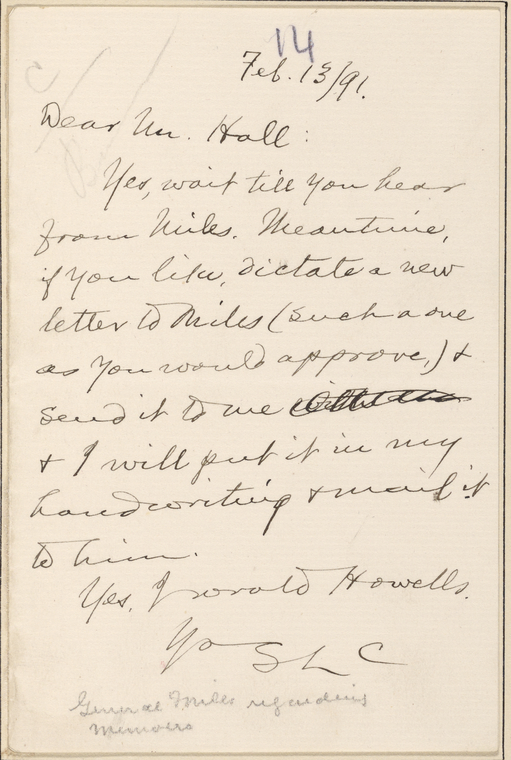 14
Feb. 13/91.
Dear Mr. Hall:
Yes, wait till you hear
from Miles. Meantime,
if you like, dictate a new
letter to Miles (such a one
as you would approve,) &
send it to me
& I will put it in my
handwriting & mail it
to him.
Yes, I wrote Howells.
Yrs SLC
General Miles regarding
Memoirs